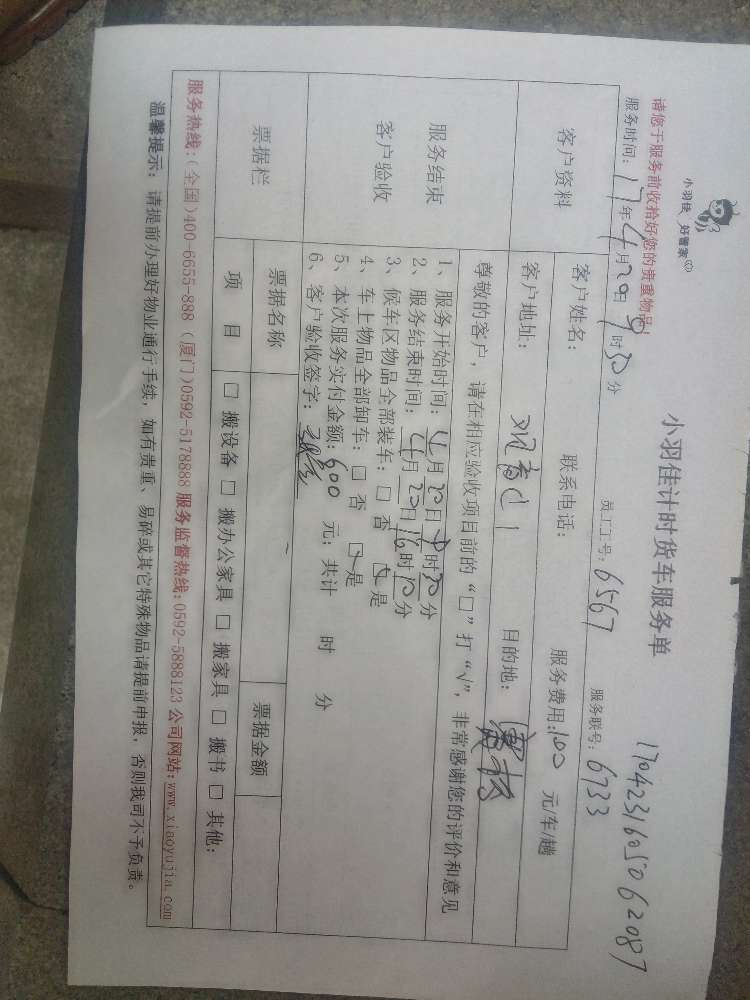 小羽佳 好管家
小羽佳计时货车服务单
17042316050 62087
请您于服务前收拾好您的贵重物品!
服务时间: 17年4月20日9时30分 员工工号: 6567 服务联号: 6733
客户资料
客户姓名: 联系电话: 服务费用:100 元/车/趟
客户地址: 目的地:
服务结束
客户验收
尊敬的客户, 请在相应验收项目前的“□”打“√”, 非常感谢您的评价和意见
1、服务开始时间: 4月20日9时30分
2、服务结束时间: 4月20日16时10分
3、候车区物品全部装车: □ 否 □ 是
4、车上物品全部卸车: □ 否 □ 是
5、本次服务实付金额: 600 元; 共计 时 分
6、客户验收签字:
票据栏
票据名称 票据金额
项 目 □ 搬设备 □ 搬办公家具 □ 搬家具 □ 搬书 □ 其他:
服务热线:(全国)400-6655-888 (厦门)0592-5178888 服务监督热线:0592-5888123 公司网站:www.xiaoyujia.com
温馨提示: 请提前办理好物业通行手续, 如有贵重、易碎或其它特殊物品请提前申报, 否则我司不予负责。